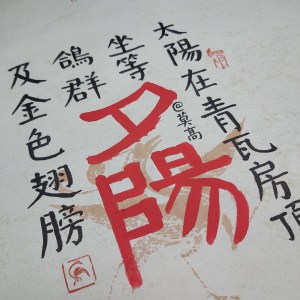 太陽在青瓦房頂
坐等
@莫高
夕陽
鴿群
及金色翅膀